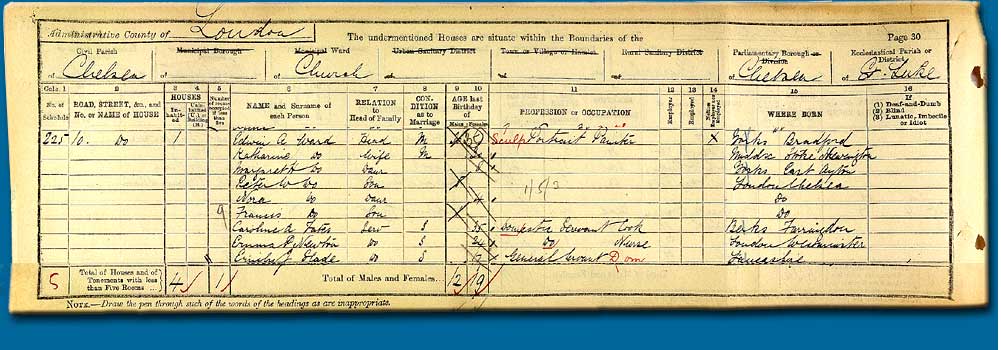 Administrative County of London
The undermentioned Houses are situate within the Boundaries of the
Page 30
Civil Parish of Chelsea
Municipal Borough of
Municipal Ward of Church
Urban Sanitary District of
Town or Village or Hamlet of
Rural Sanitary District of
Parliamentary Borough or Division of Chelsea
Ecclesiastical Parish or District of St Luke
Cols. 1 2 3 4 5 6 7 8 9 10 11 12 13 14 15 16
No. of Schedule
ROAD, STREET, &c., and No. or NAME of HOUSE
HOUSES
Inhabited
NAME and Surname of each Person
RELATION to Head of Family
CONDITION as to Marriage
AGE last Birthday of
Males Females
PROFESSION or OCCUPATION
Employer
Employed
WHERE BORN
If
(1) Deaf-and-Dumb
(2) Blind
(3) Lunatic, Imbecile or Idiot
225 10. Do 1 Edwin A Ward Head M Sculp Portrait Painter X Yorks Bradford
Katharine Do Wife M Middsx Stoke Newington
Margarett Do Daur 8 Yorks East Ayton
Peter W Do Son London Chelsea
Nora Do Daur 4 Do
9 Francis Do Son Do
Caroline A Serv S Domestic Servant Cook Berks Farringdon
Emma Newton Do S 24 Do Nurse London Westminster
Do S General Servant Dom Lancashire
5 Total of Houses and of Tenements with less than Five Rooms 4 1 Total of Males and Females 12 19
NOTE.—Draw the pen through such of the words of the headings as are inappropriate.